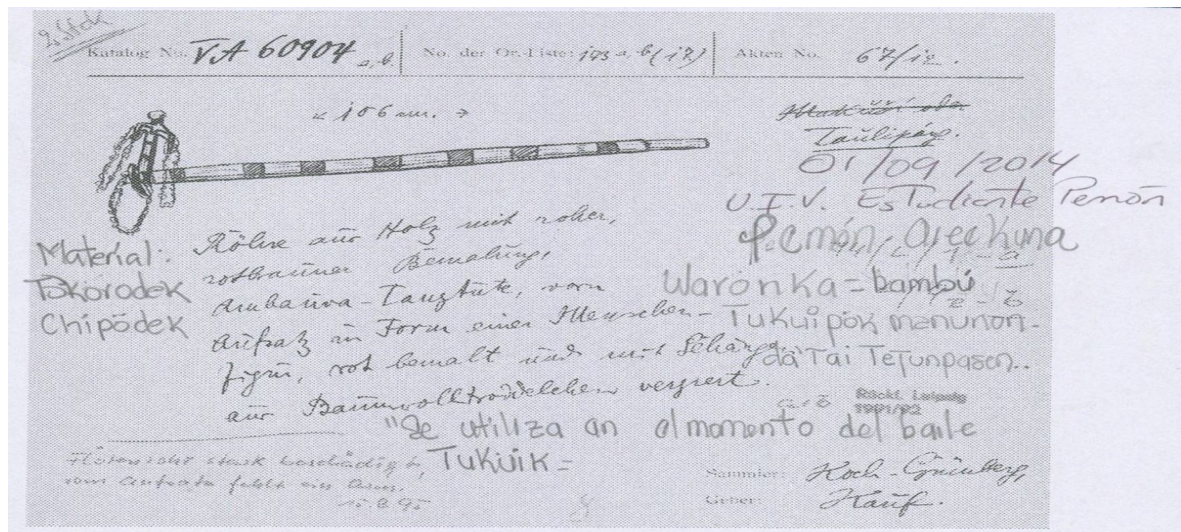 2 Stck
Katalog No. VA 60904 a, b. No. der Or.-Liste: 173 a, b (17) Akten No. 67/12.
← 106 cm. →
Makuschí oder
Taulipáng.
01/09/2014
U.I.V. Estudiante Pemón
Pemón Arekuna
Material:
Tokorodek
Chipödek
Röhre aus Holz mit roher,
rotbrauner Bemalung,
Arubaúva-Tanztüte, vorn
Aufsatz in Form einer Menschen-
figur, rot bemalt und mit Gehänge
aus Baumwolltroddelchen verziert.
Waronka = bambú
Tukuipök menunon-
dä Tai Tejunpason..
Rückf. Leipzig
1991/92
"Se utiliza an al momento del baile
Tukuik =
Flötenrohr stark beschädigt,
vom Aufsatz fehlt ein Arm.
15.8.95
Sammler: Koch-Grünberg,
Geber: Kauf.